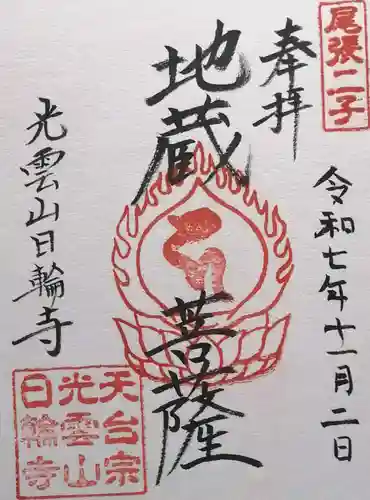 尾張二子
奉拝
令和七年十一月二日
地蔵菩薩
光雲山日輪寺
天台宗
光雲山
日輪寺